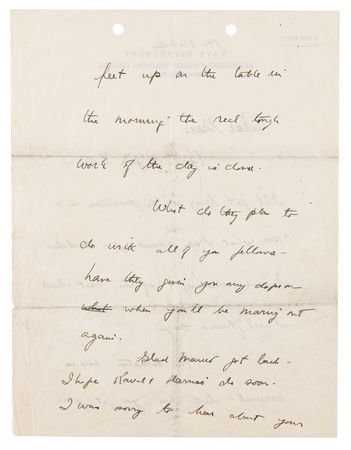 feet up on the table in
the morning the real tough
work of the day is done.
What do they plan to
do with all of you fellows -
have they given you any dope on
what when you'll be moving out
again.
Glad got back -
I hope & do soon.
I was sorry to hear about your